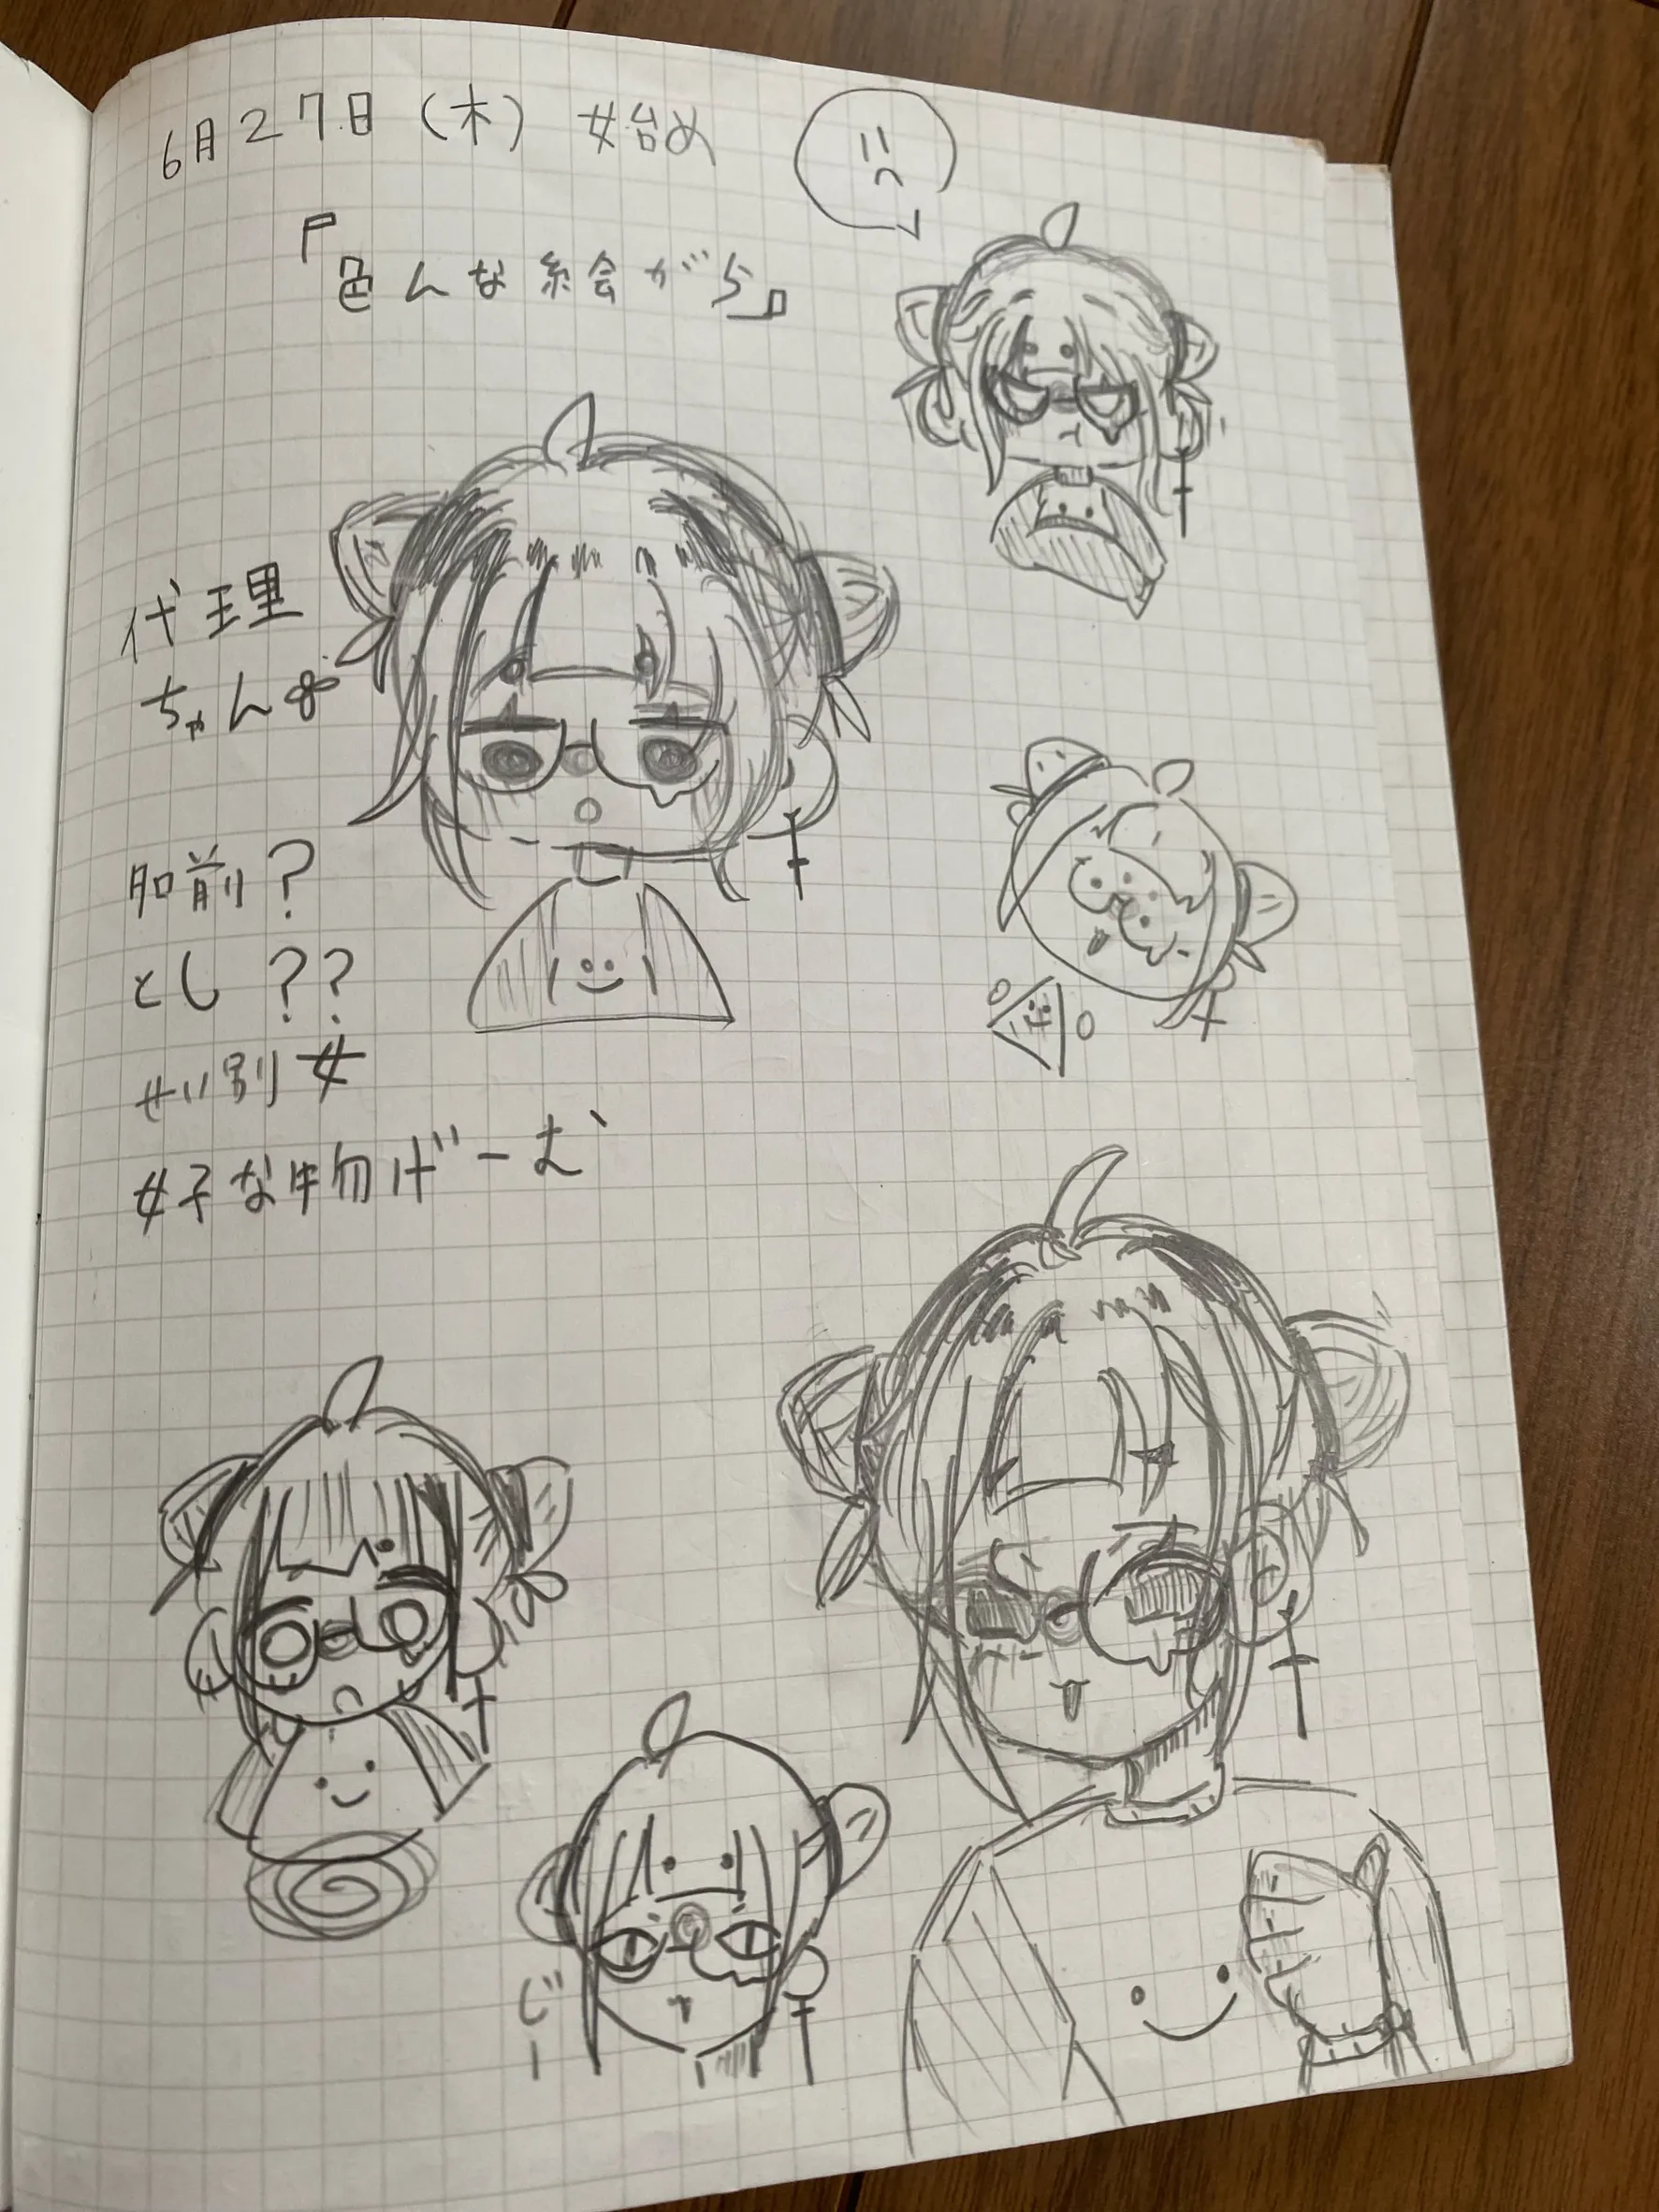 6月27日(木) 始め
『色んな絵がら』
代理
ちゃん
名前?
とし??
せい別女
好な物げーむ
じー